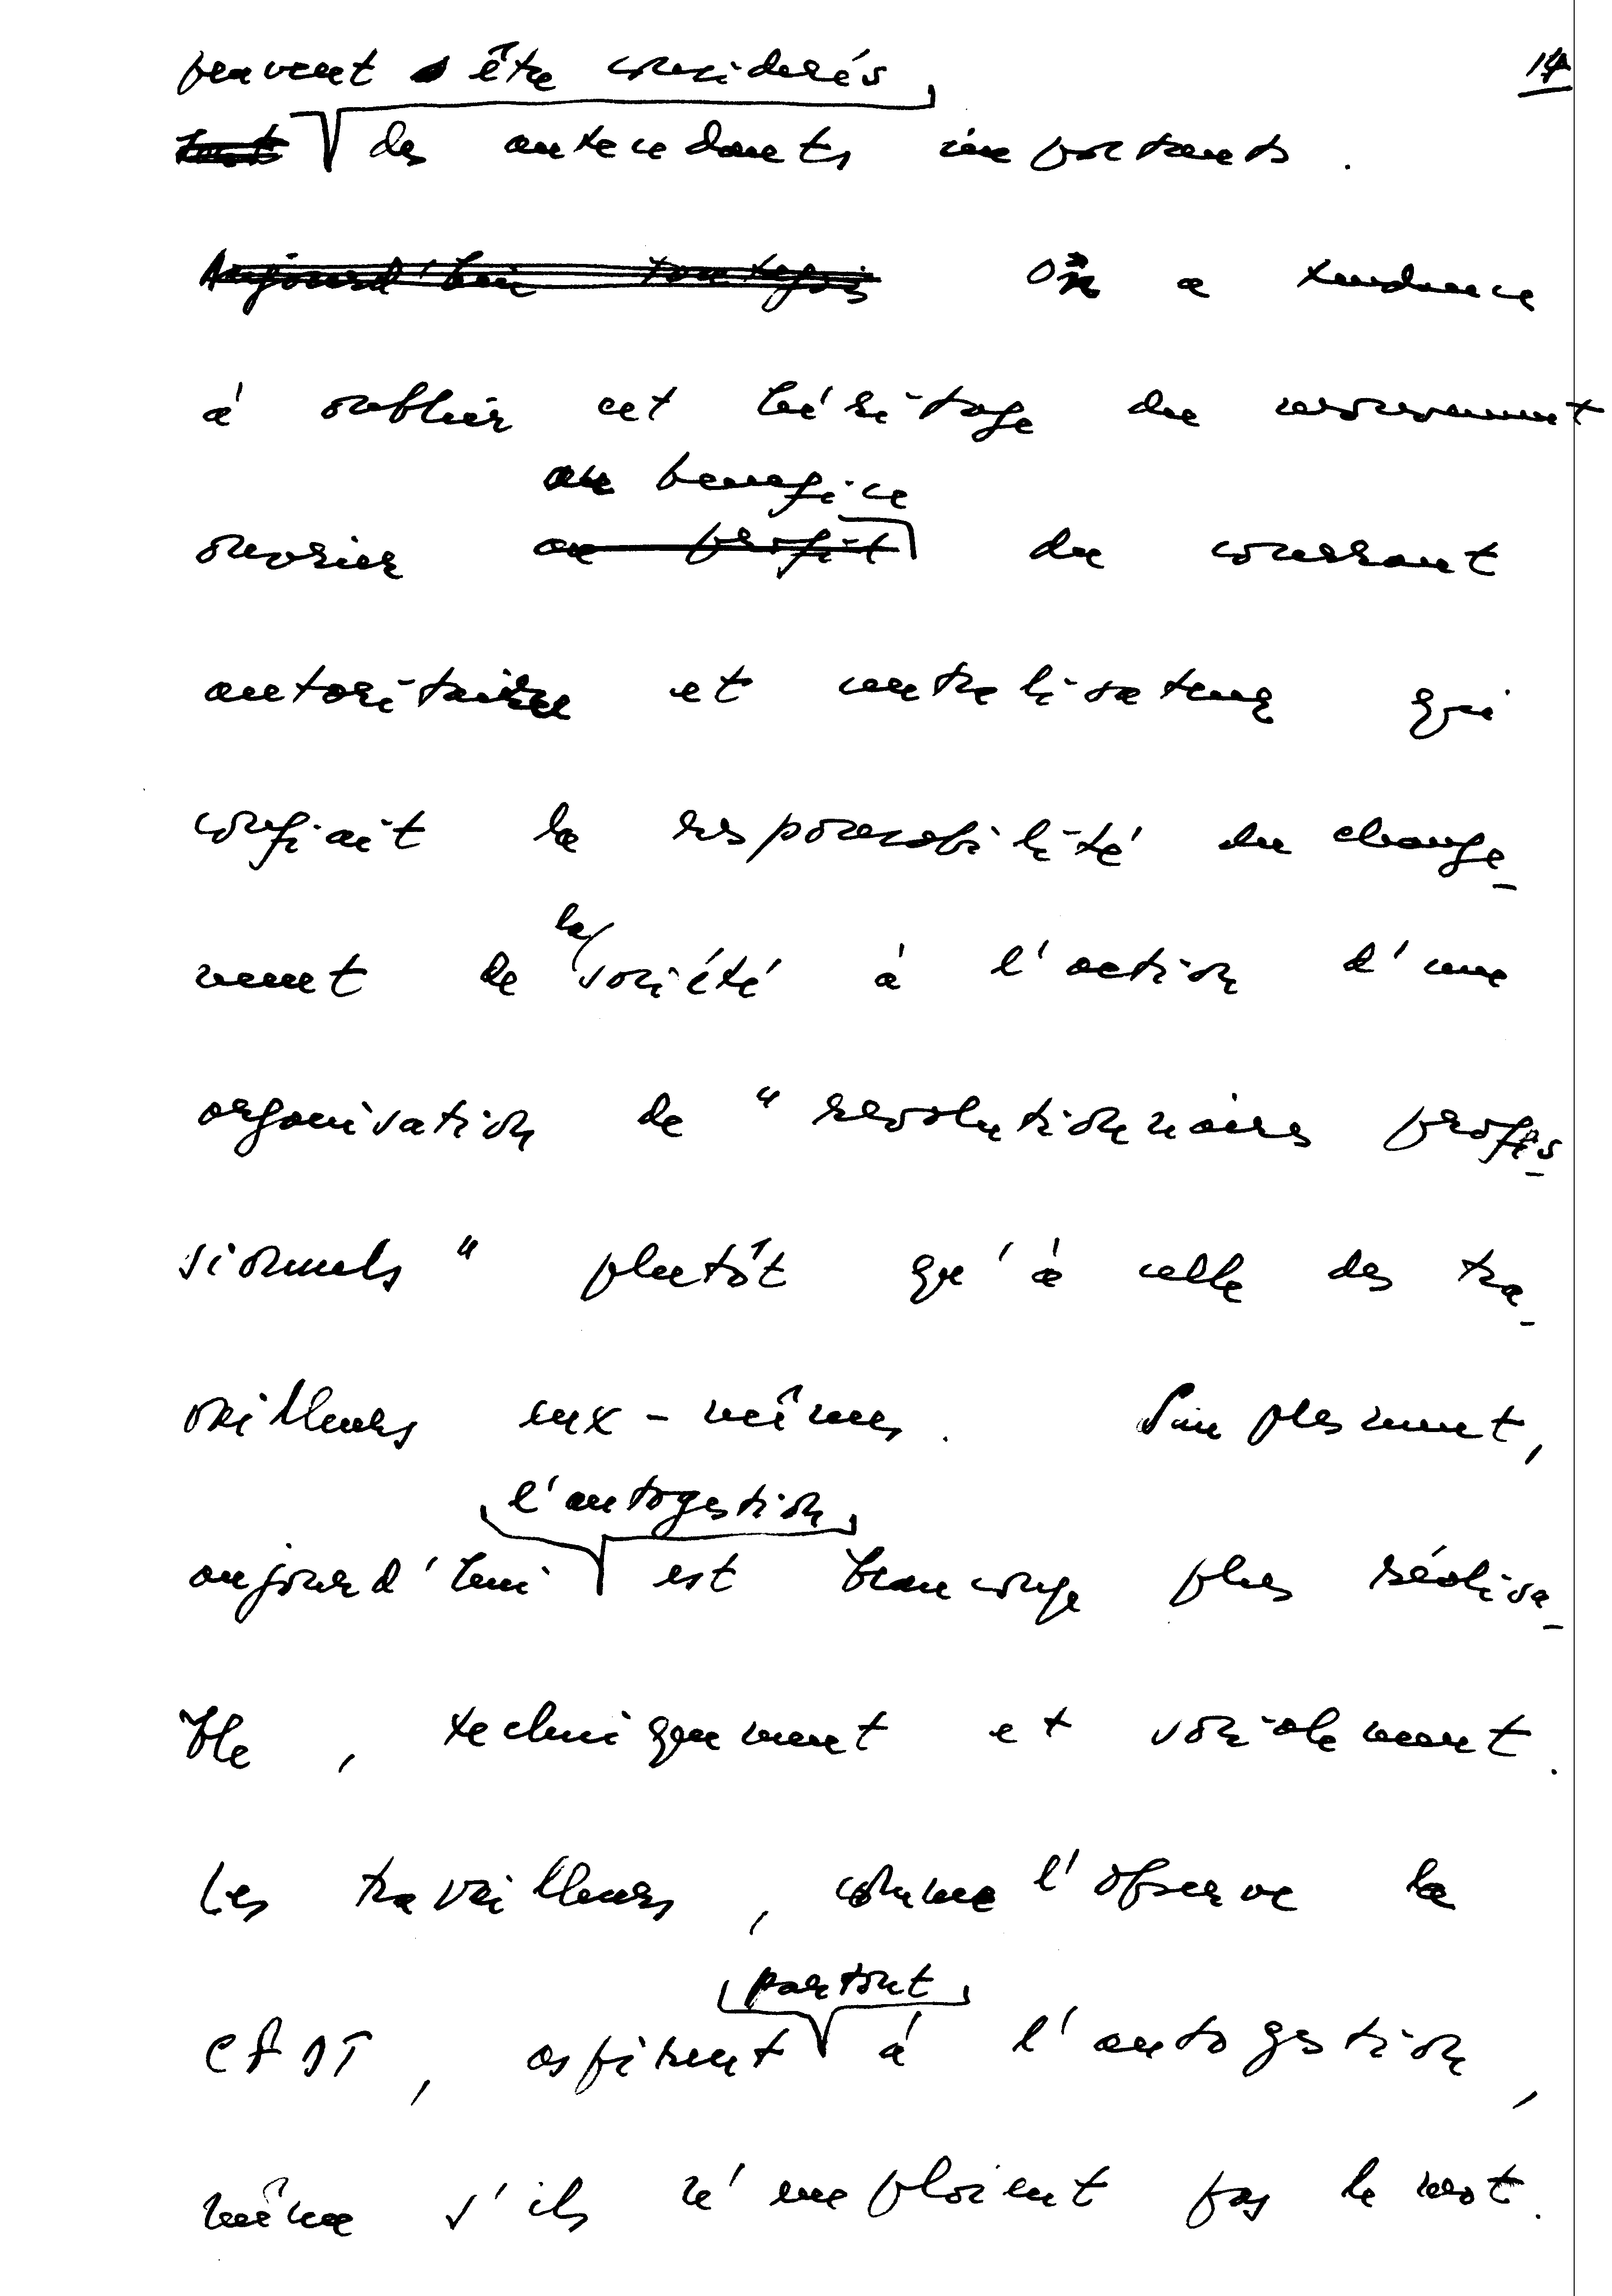 peuvent être considérés
14
sont des antecedants importants.
Aujourd'hui toutefois On a tendance
à oublier cet héritage du mouvement
au benefice
ouvrier au profit du courrant
autoritaire et centralisateur qui
confiait la responsabilité du change_
la
ment de société à l'action d'une
organisation de "revolutionnaires profes_
sionnels" plutôt qu'à celle des tra_
vailleurs eux-mêmes. Simplement,
l'autogestion
aujourd'hui est beaucoup plus réalisa_
ble, techniquement et socialement.
Les travailleurs, comme l'observe la
partout
CFDT, aspirent à l'autogestion,
même s'ils n'emploient pas le mot.